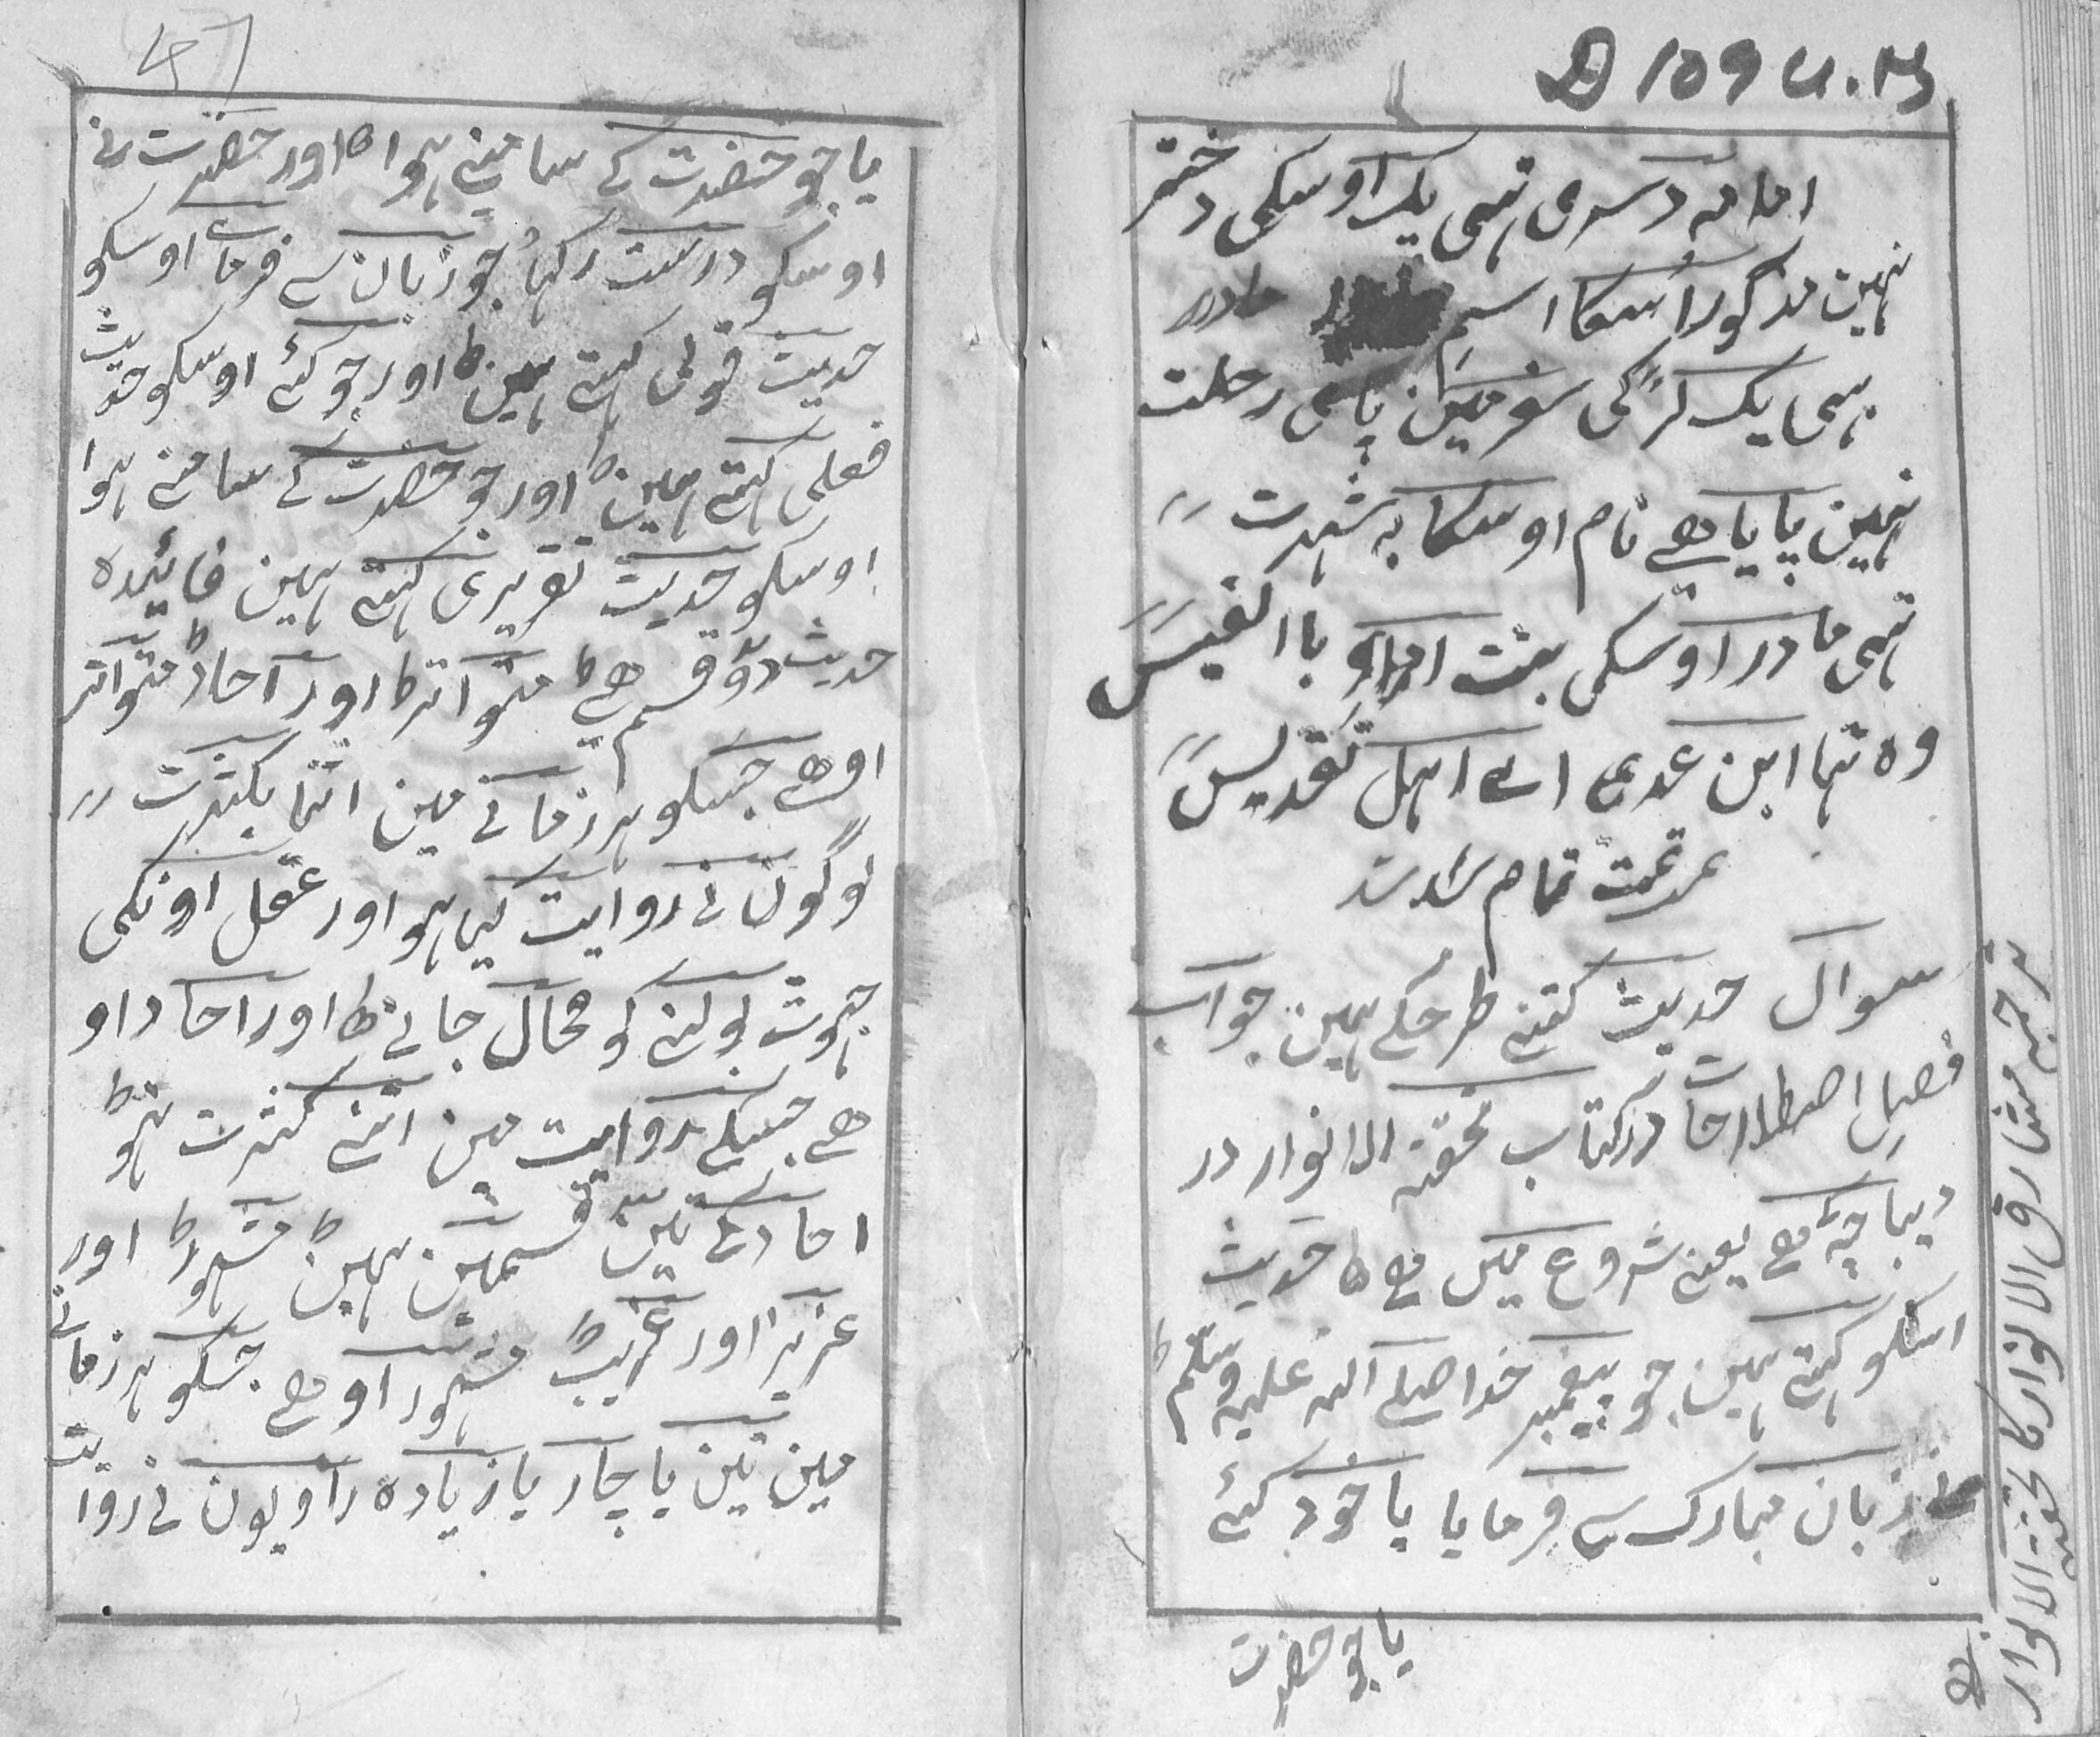 D 109 U.M
امامہ دسری تہی یک اوسکی دختر
نہین مذکور اُسکا اسم مادر
ہی یک لڑکی سفر مین پائی رحلت
نہین پایا ہے نام اوسکا بہ شہرت
تہی مادر اوسکی بنت باالفیس
وہ تہا ابن عدی اے اہل تقدیس
تمت تمام شد
سوال حدیث کتنے طرحکے ہین جواب
فصل اصطلاحات در کتاب تحفتہ الانوار در
دیباچہ ہے یعنے شروع مین ہے ط حدیث
اسکو کہتے ہین جو پیغمبر خدا صلے اللہ علیہ وسلم ط
نے زبان مبارک سے فرمایا یا خود کئے
یا جو حضرت
ترجمہ مشارق الانوار کا تحفتہ الانوار
47
یا جو حضرت کے سامنے ہوا ط اور حضرت نے
اوسکو درست رکہا جو زبان سے فرمائے اوسکو
حدیث قولی کہتے ہین ط اور جو کئے اوسکو حدیث
فعلی کہتے ہین ط اور جو حضرت کے سامنے ہوا
اوسکو حدیث تقریری کہتے ہین فائیدہ
حدیث دو قسم ہے ط متواتر ط اور آحاد ط متواتر
او ہے جسکو ہر زمانے مین اتنا بکثرت
لوگون نے روایت کیا ہو اور عقل اونکی
جہوٹ بولنے کو محال جانے ط اور احاد او
ہے جسکے روایت مین اتنے کثرت نہو ط
احاد کے تین قسمین ہین ط مشہور ط اور
عزیز اور غریب ط مشہور او ہے جسکو ہر زمانے
مین تین یا چار یا زیادہ راویون نے روایت